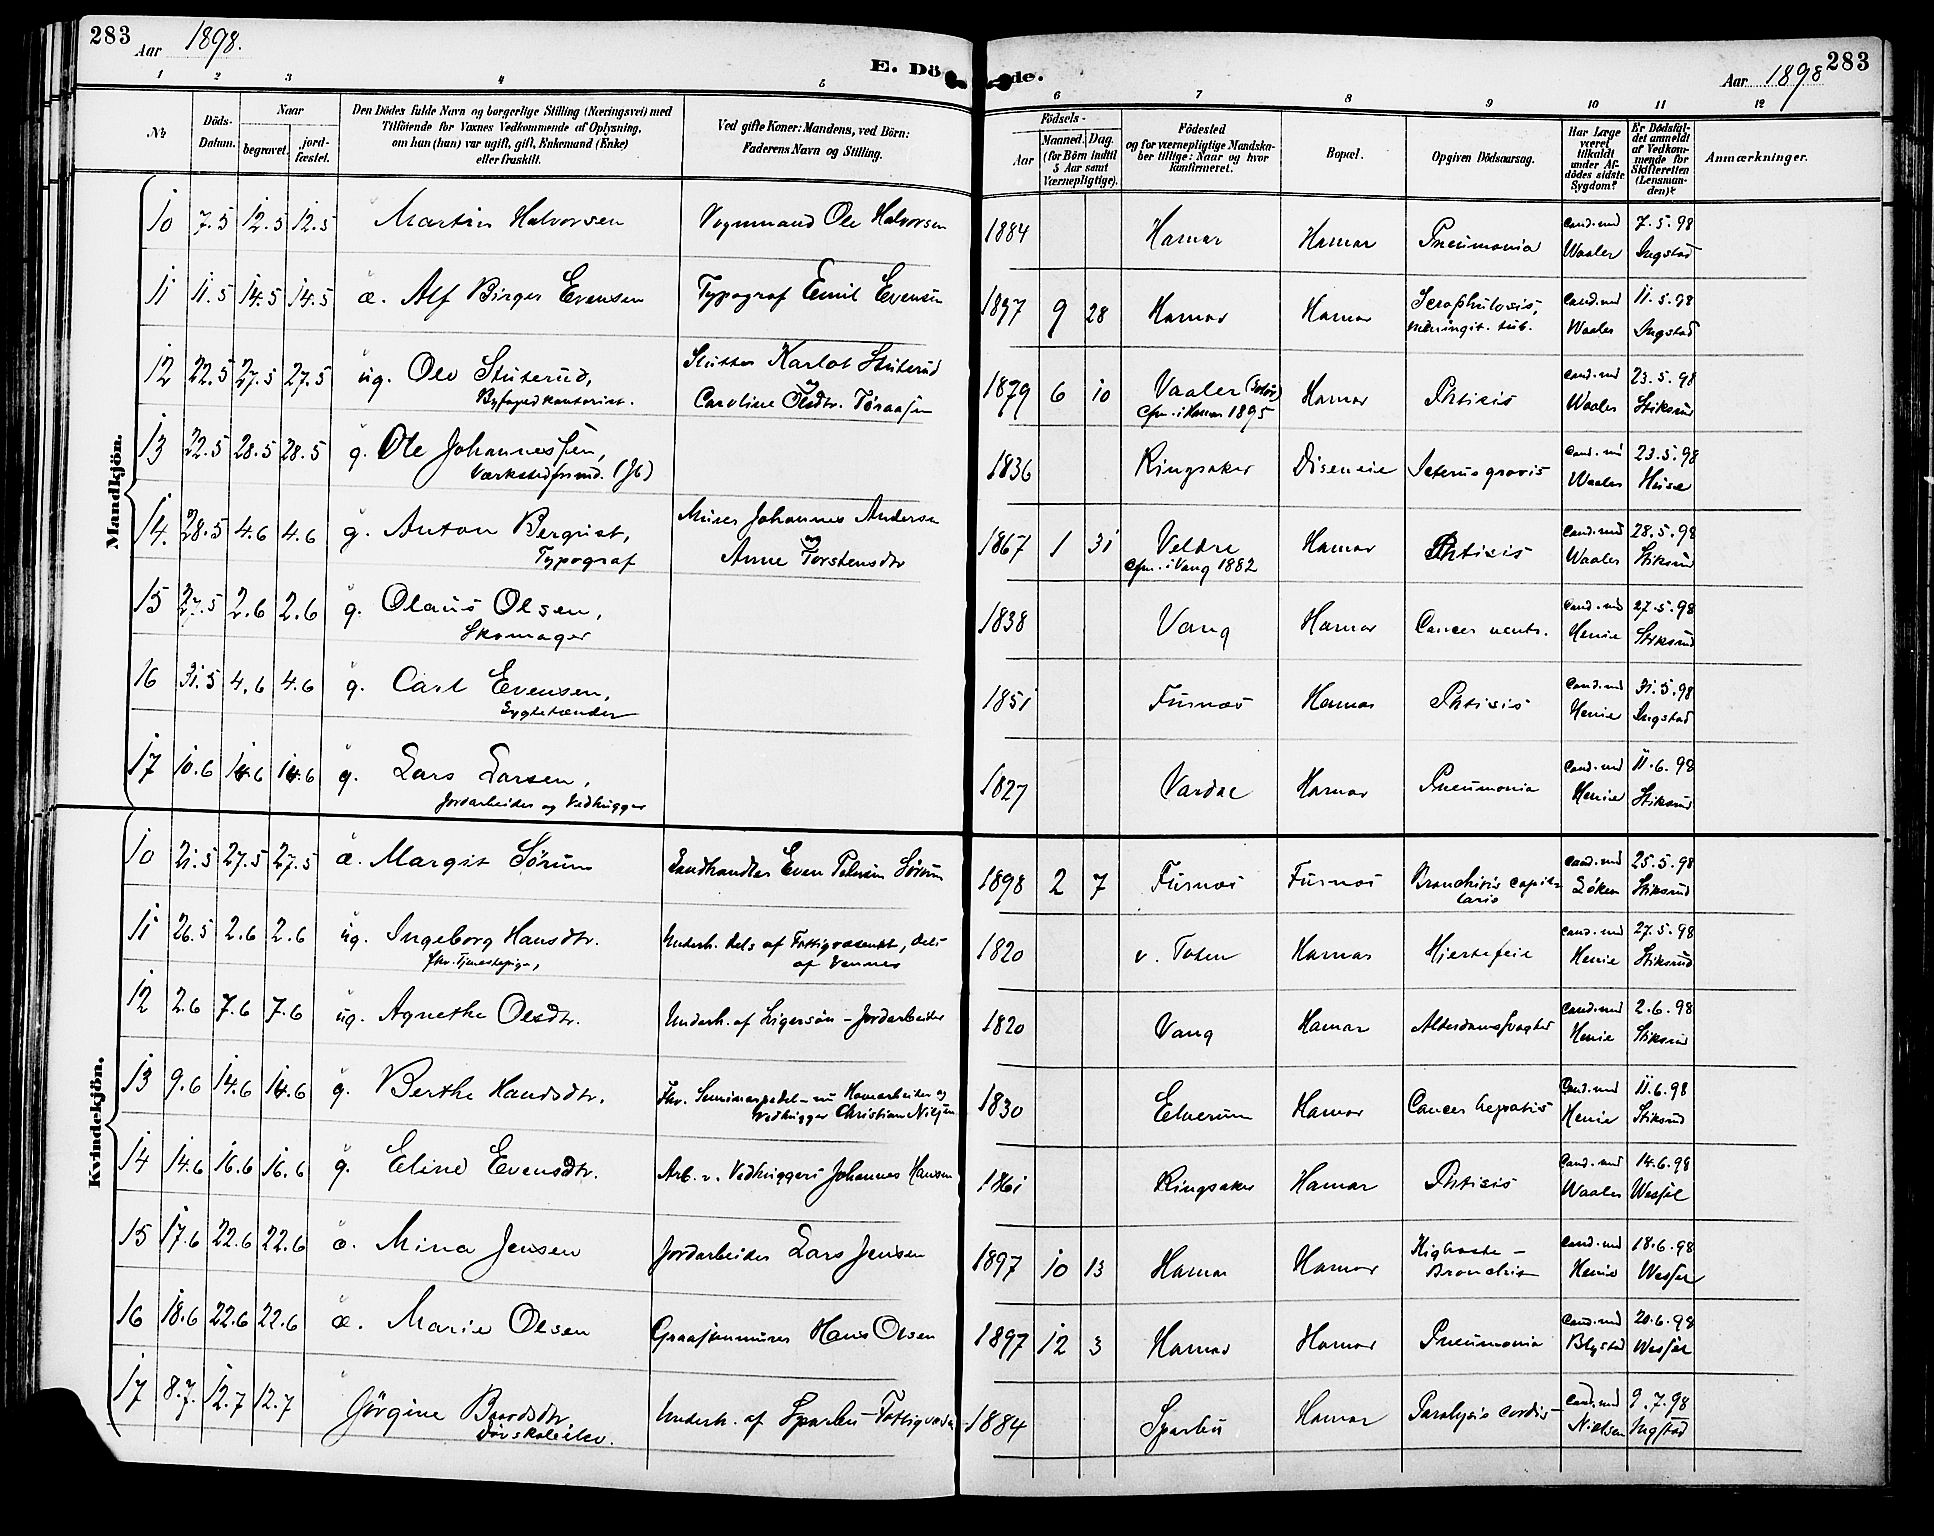 283 Aar 1898.
E. Dö de.
Aar 1898 283
1 2 3 4 5 6 7 8 9 10 11 12
No
Döds-Datum.
Naar
begravet.
jord-fæstet.
Den Dödes fulde Navn og borgerlige Stilling (Næringsvei) med
Tilföiende for Voxnes Vedkommende af Oplysning,
om han (hun) var ugift, gift, Enkemand (Enke)
eller fraskilt.
Ved gifte Koner: Mandens, ved Börn:
Faderens Navn og Stilling.
Födsels-
Aar
Maaned. Dag.
(for Börn indtil
5 Aar samt
Værnepligtige).
Födested
og for værnepligtige Mandska-
ber tillige: Naar og hvor
konfirmeret.
Bopæl.
Opgiven Dödsaarsag.
Har Læge
været
tilkaldt
under Af-
dödes sidste
Sygdom?
Er Dödsfal-
det anmeldt
af Vedkom-
mende for
Skifteretten
(Lensman-
den)?
Anmærkninger.
Mandkjön.
10 7.5 12.5 12.5 Martin Halvorsen Vognmand Ole Halvorsen 1884 Hamar Hamar Pneumonia Cand. med Waaler 7.5.98 Ingstad
11 11.5 14.5 14.5 æ. Alf Birger Evensen Typograf Emil Evensen 1897 9 28 Hamar Hamar Scrophulosis, meningit. tub. Cand. med Waaler 11.5.98 Ingstad
12 22.5 27.5 27.5 ug. Ole Stuterud, Karlot Stuterud
Byfogedkontorist. og Caroline Olsdtr. 1879 6 10 Vaaler (Solør) Cfm. i Hamar 1895 Hamar Phtisis Cand. med Waaler 23.5.98 Stiksrud
13 22.5 28.5 28.5 g. Ole Johannessen,
(Jb) 1836 Ringsaker Diseneie Icterus gravis Cand. med Waaler 23.5.98
14. 28.5 4.6 4.6 g. Anton Bergist, Murer Johannes Andersen
Typograf og Anne Torstensdtr 1867 1 31 Veldre Cfm. i Vang 1882 Hamar Phtisis Cand. med Waaler 28.5.98 Stiksrud
15 27.5 2.6 2.6 g. Olaus Olsen,
Skomager 1838 Vang Hamar Cancer ventr. Cand. med Henie 27.5.98 Stiksrud
16 31.5 4.6 4.6 g. Carl Evensen,
Lygtetænder 1851 Furnæs Hamar Phtisis Cand. med Henie 31.5.98 Ingstad
17 10.6 14.6 14.6 g. Lars Larsen,
Jordarbeider og Vedhugger 1827 Vardal Hamar Pneumonia Cand. med Henie 11.6.98 Stiksrud
Kvindekjön.
10 21.5 27.5 27.5 æ. Margit Sörum Landhandler Even Sörum 1898 2 7 Furnæs Furnæs Bronchitis capillaris Cand. med Löken 25.5.98 Stiksrud
11 26.5 2.6 2.6 ug. Ingeborg Hansdtr. Underh. dels af Fattigvæsenet, dels
fhv. Tjenestepige, af Venner 1820 v. Toten Hamar Hjertefeil Cand. med Henie 27.5.98 Stiksrud
12 2.6 7.6 7.6 ug. Agnethe Olsdtr. Underh. af Svigersøn - Jordarbeider 1820 Vang Hamar Alderdomssvaghed Cand. med Henie 2.6.98 Stiksrud
13 9.6 14.6 14.6 g. Berthe Hansdtr. Fhv. Seminarpedel - nu Havearbeider og
Vedhugger Christian Nilsen 1830 Elverum Hamar Cancer hepatis Cand. med Henie 11.6.98 Stiksrud
14 14.6 16.6 16.6 g. Eline Evensdtr. Arb. v. Vedhuggeri Johannes Hansen 1861 Ringsaker Hamar Phtisis Cand. med Waaler 14.6.98 Wessel
15 17.6 22.6 22.6 æ. Mina Jensen Jordarbeider Lars Jensen 1897 10 13 Hamar Hamar Kighoste - Bronchit Cand. med Henie 18.6.98 Wessel
16 18.6 22.6 22.6 æ. Marie Olsen Graastensmurer Hans Olsen 1897 12 3 Hamar Hamar Pneumonia Cand. med Blystad 20.6.98 Wessel
17 8.7. 12.7 12.7 Jörgine Baardsdtr. Underh. af Sparbu Fattigvæsen
Døvskoleelev. 1884 Sparbu Hamar Paralysis cordis Cand. med Nielsen 9.7.98 Ingstad